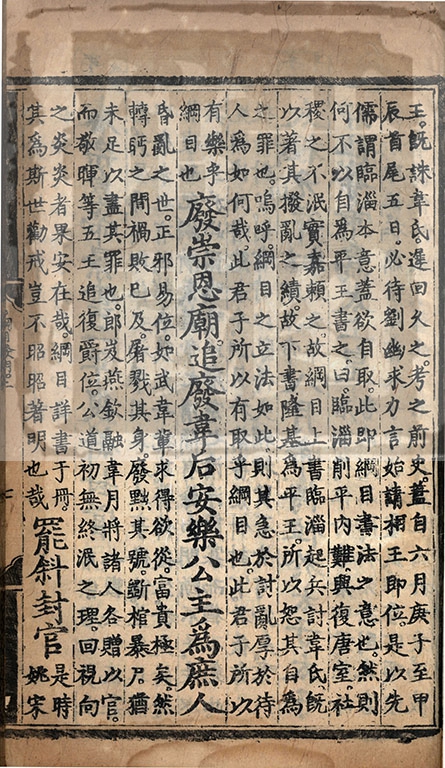 王。既誅韋氏。遲回久之。考之前史。蓋自六月庚子至甲
辰首尾五日。必待劉幽求力言。始請相王即位。是以先
儒謂臨淄本意蓋欲自取。此即綱目書法之意也。然則
何不以自爲平王書之。曰。臨淄削平內難。興復唐室。社
稷之不泯實嘉賴之。故綱目上書臨淄起兵討韋氏旣
以著其撥亂之績。故下書隆基爲平王。所以恕其自爲
之罪也。嗚呼。綱目之立法如此。則其急於討亂厚於待
人爲如何哉。此君子所以有取乎綱目也。此君子所以
有樂乎
綱目也
廢崇恩廟。追廢韋后安樂公主爲庶人
昏亂之世。正邪易位。如武韋輩求得欲從。富貴極矣。然
轉眄之間禍敗已及。屠戮其身。廢黜其號。斲棺暴尸。猶
未足以盡其罪也。郎岌燕欽融韋月將諸人各贈以官。
而敬暉等五王追復爵位。公道初無終泯之理。回視向
之炎炎者果安在哉。綱目詳書于冊。
其爲斯世勸戒豈不昭昭著明也哉
罷斜封官
是時
姚宋